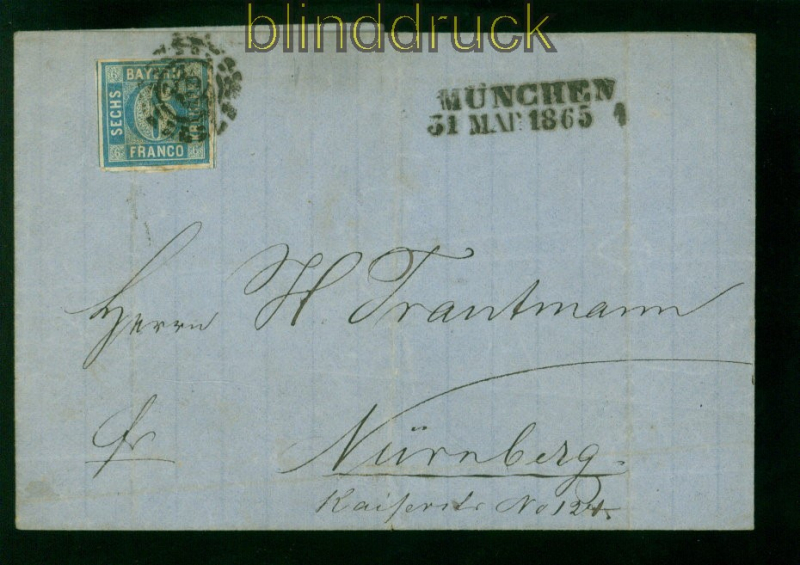 blinddruck
BAYERN
SECHS
FRANCO
MÜNCHEN
31 MAR 1865 1
Herrn H. Trautmann
fr
Nürnberg.
Kaiserstr No 124.